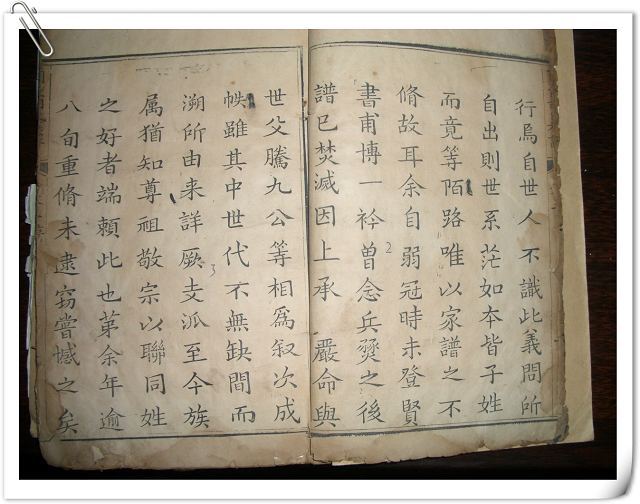 行焉自世人不識此義問所
自出則世系茫如本皆子姓
而竟等陌路唯以家譜之不
脩故耳余自弱冠時未登賢
書甫博一衿曽念兵燹之後
譜已焚滅因上承 嚴命與
世父騰九公等相爲叙次成
帙雖其中世代不無缺間而
溯所由来詳厥支派至今族
属猶知尊祖敬宗以聯同姓
之好者端頼此也苐余年逾
八旬重脩未逮窃嘗憾之矣
2
3